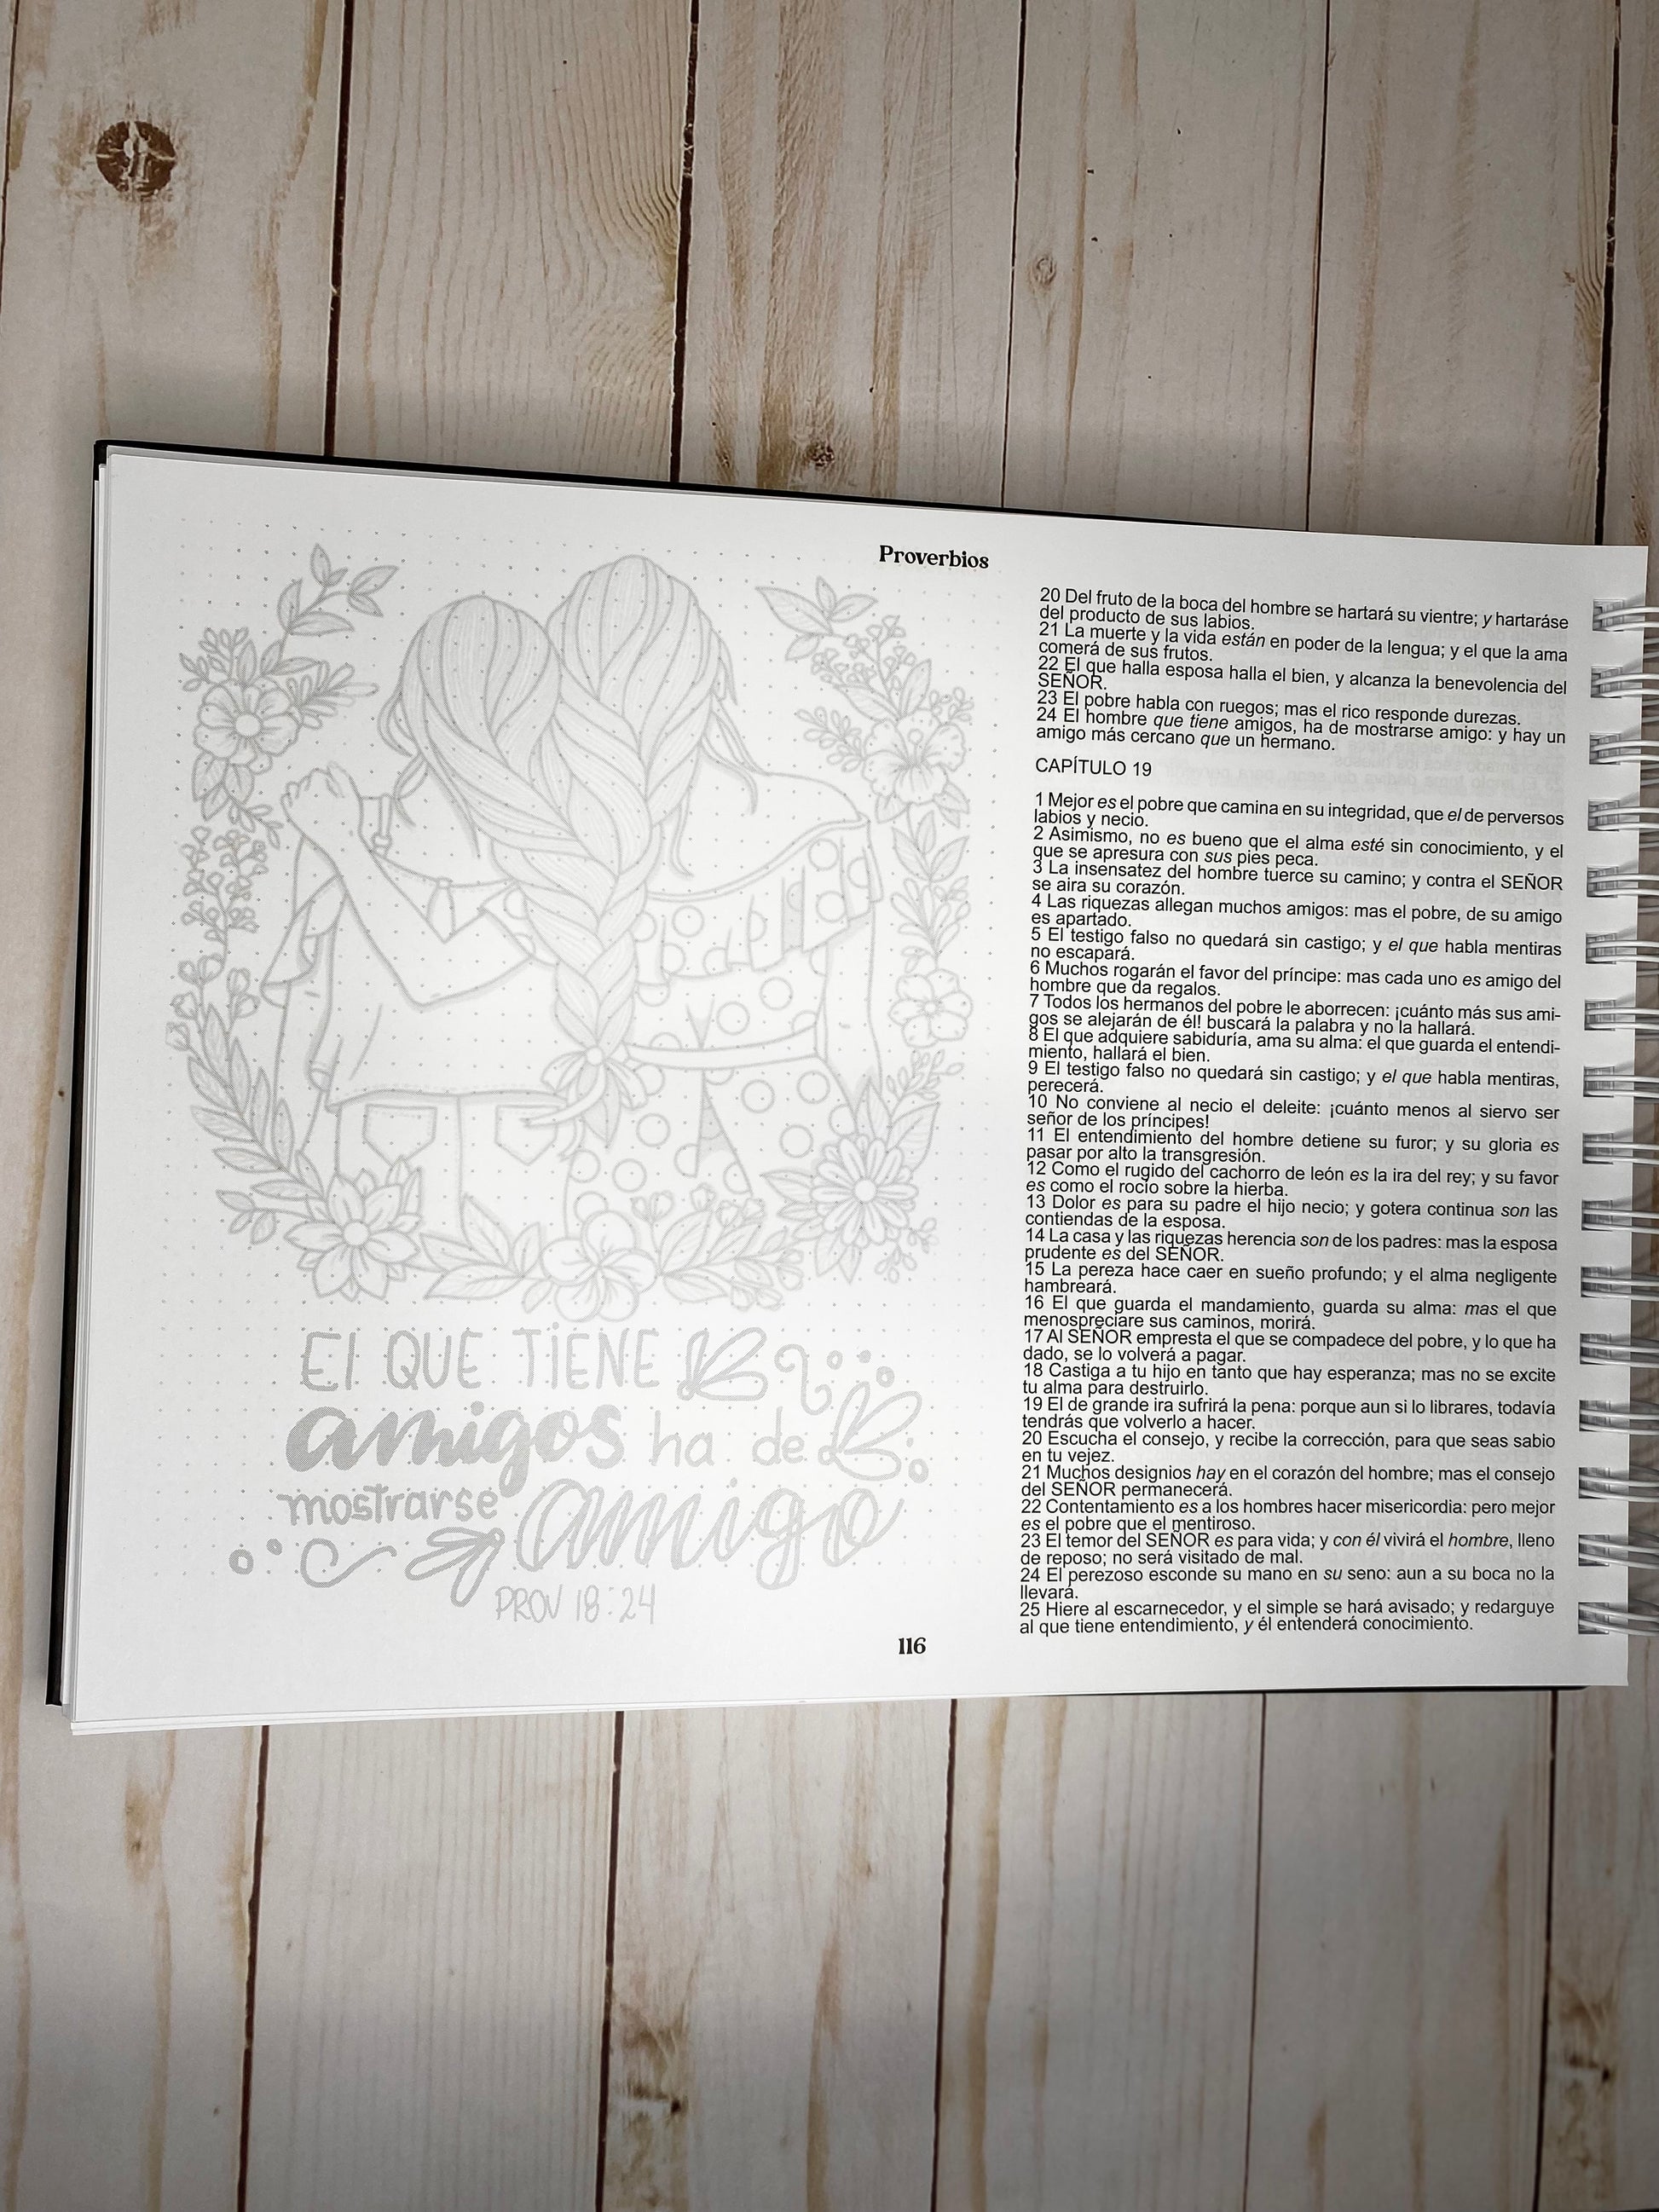 Proverbios
El QUE TiENE
amigos ha de
mostrarse amigo
PROV 18:24
20 Del fruto de la boca del hombre se hartará su vientre; y hartaráse
del producto de sus labios.
21 La muerte y la vida están en poder de la lengua; y el que la ama
comerá de sus frutos.
22 El que halla esposa halla el bien, y alcanza la benevolencia del
SEÑOR.
23 El pobre habla con ruegos; mas el rico responde durezas.
24 El hombre que tiene amigos, ha de mostrarse amigo: y hay un
amigo más cercano que un hermano.
CAPÍTULO 19
1 Mejor es el pobre que camina en su integridad, que el de perversos
labios y necio.
2 Asimismo, no es bueno que el alma esté sin conocimiento, y el
que se apresura con sus pies peca.
3 La insensatez del hombre tuerce su camino; y contra el SEÑOR
se aira su corazón.
4 Las riquezas allegan muchos amigos: mas el pobre, de su amigo
es apartado.
5 El testigo falso no quedará sin castigo; y el que habla mentiras
no escapará.
6 Muchos rogarán el favor del príncipe: mas cada uno es amigo del
hombre que da regalos.
7 Todos los hermanos del pobre le aborrecen: ¡cuánto más sus ami-
gos se alejarán de él! buscará la palabra y no la hallará.
8 El que adquiere sabiduría, ama su alma: el que guarda el entendi-
miento, hallará el bien.
9 El testigo falso no quedará sin castigo; y el que habla mentiras,
perecerá.
10 No conviene al necio el deleite: ¡cuánto menos al siervo ser
señor de los príncipes!
11 El entendimiento del hombre detiene su furor; y su gloria es
pasar por alto la transgresión.
12 Como el rugido del cachorro de león es la ira del rey; y su favor
es como el rocío sobre la hierba.
13 Dolor es para su padre el hijo necio; y gotera continua son las
contiendas de la esposa.
14 La casa y las riquezas herencia son de los padres: mas la esposa
prudente es del SEÑOR.
15 La pereza hace caer en sueño profundo; y el alma negligente
hambreará.
16 El que guarda el mandamiento, guarda su alma: mas el que
menospreciare sus caminos, morirá.
17 Al SEÑOR empresta el que se compadece del pobre, y lo que ha
dado, se lo volverá a pagar.
18 Castiga a tu hijo en tanto que hay esperanza; mas no se excite
tu alma para destruirlo.
19 El de grande ira sufrirá la pena: porque aun si lo librares, todavía
tendrás que volverlo a hacer.
20 Escucha el consejo, y recibe la corrección, para que seas sabio
en tu vejez.
21 Muchos designios hay en el corazón del hombre; mas el consejo
del SEÑOR permanecerá.
22 Contentamiento es a los hombres hacer misericordia: pero mejor
es el pobre que el mentiroso.
23 El temor del SEÑOR es para vida; y con él vivirá el hombre, lleno
de reposo; no será visitado de mal.
24 El perezoso esconde su mano en su seno: aun a su boca no la
llevará.
25 Hiere al escarnecedor, y el simple se hará avisado; y redarguye
al que tiene entendimiento, y él entenderá conocimiento.
116